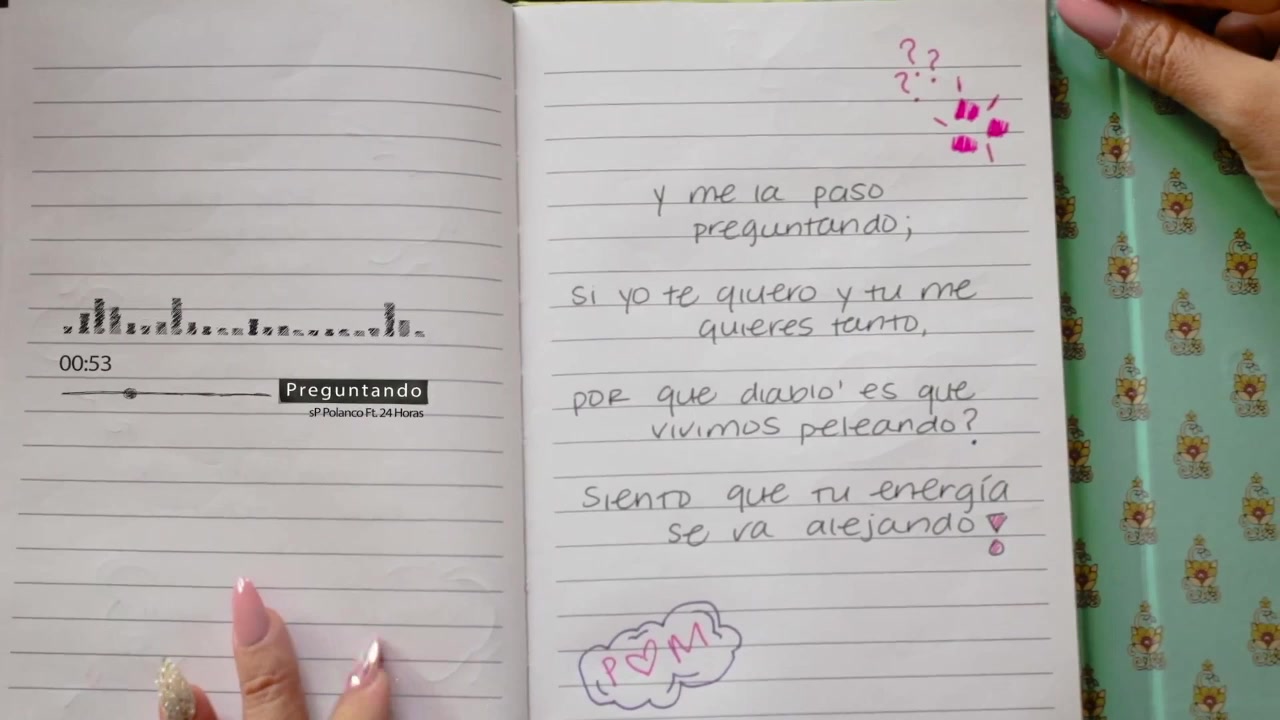 00:53
Preguntando
sP Polanco Ft. 24 Horas
? ?
?
y me la paso
preguntando;
si yo te quiero y tu me
quieres tanto,
por que diablo' es que
vivimos peleando?
siento que tu energía
se va alejando!
P♡M